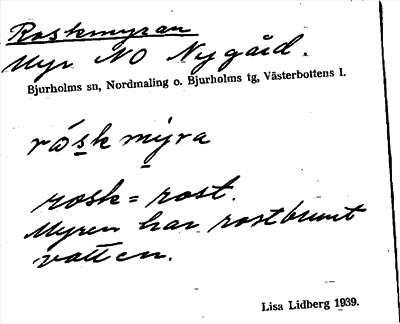 Roskmyran
Myr NO Nygård.
Bjurholms sn, Nordmaling o. Bjurholms tg, Västerbottens l.
råskmyra
rosk = rost.
Myren har rostbrunt
vatten.
Lisa Lidberg 1939.